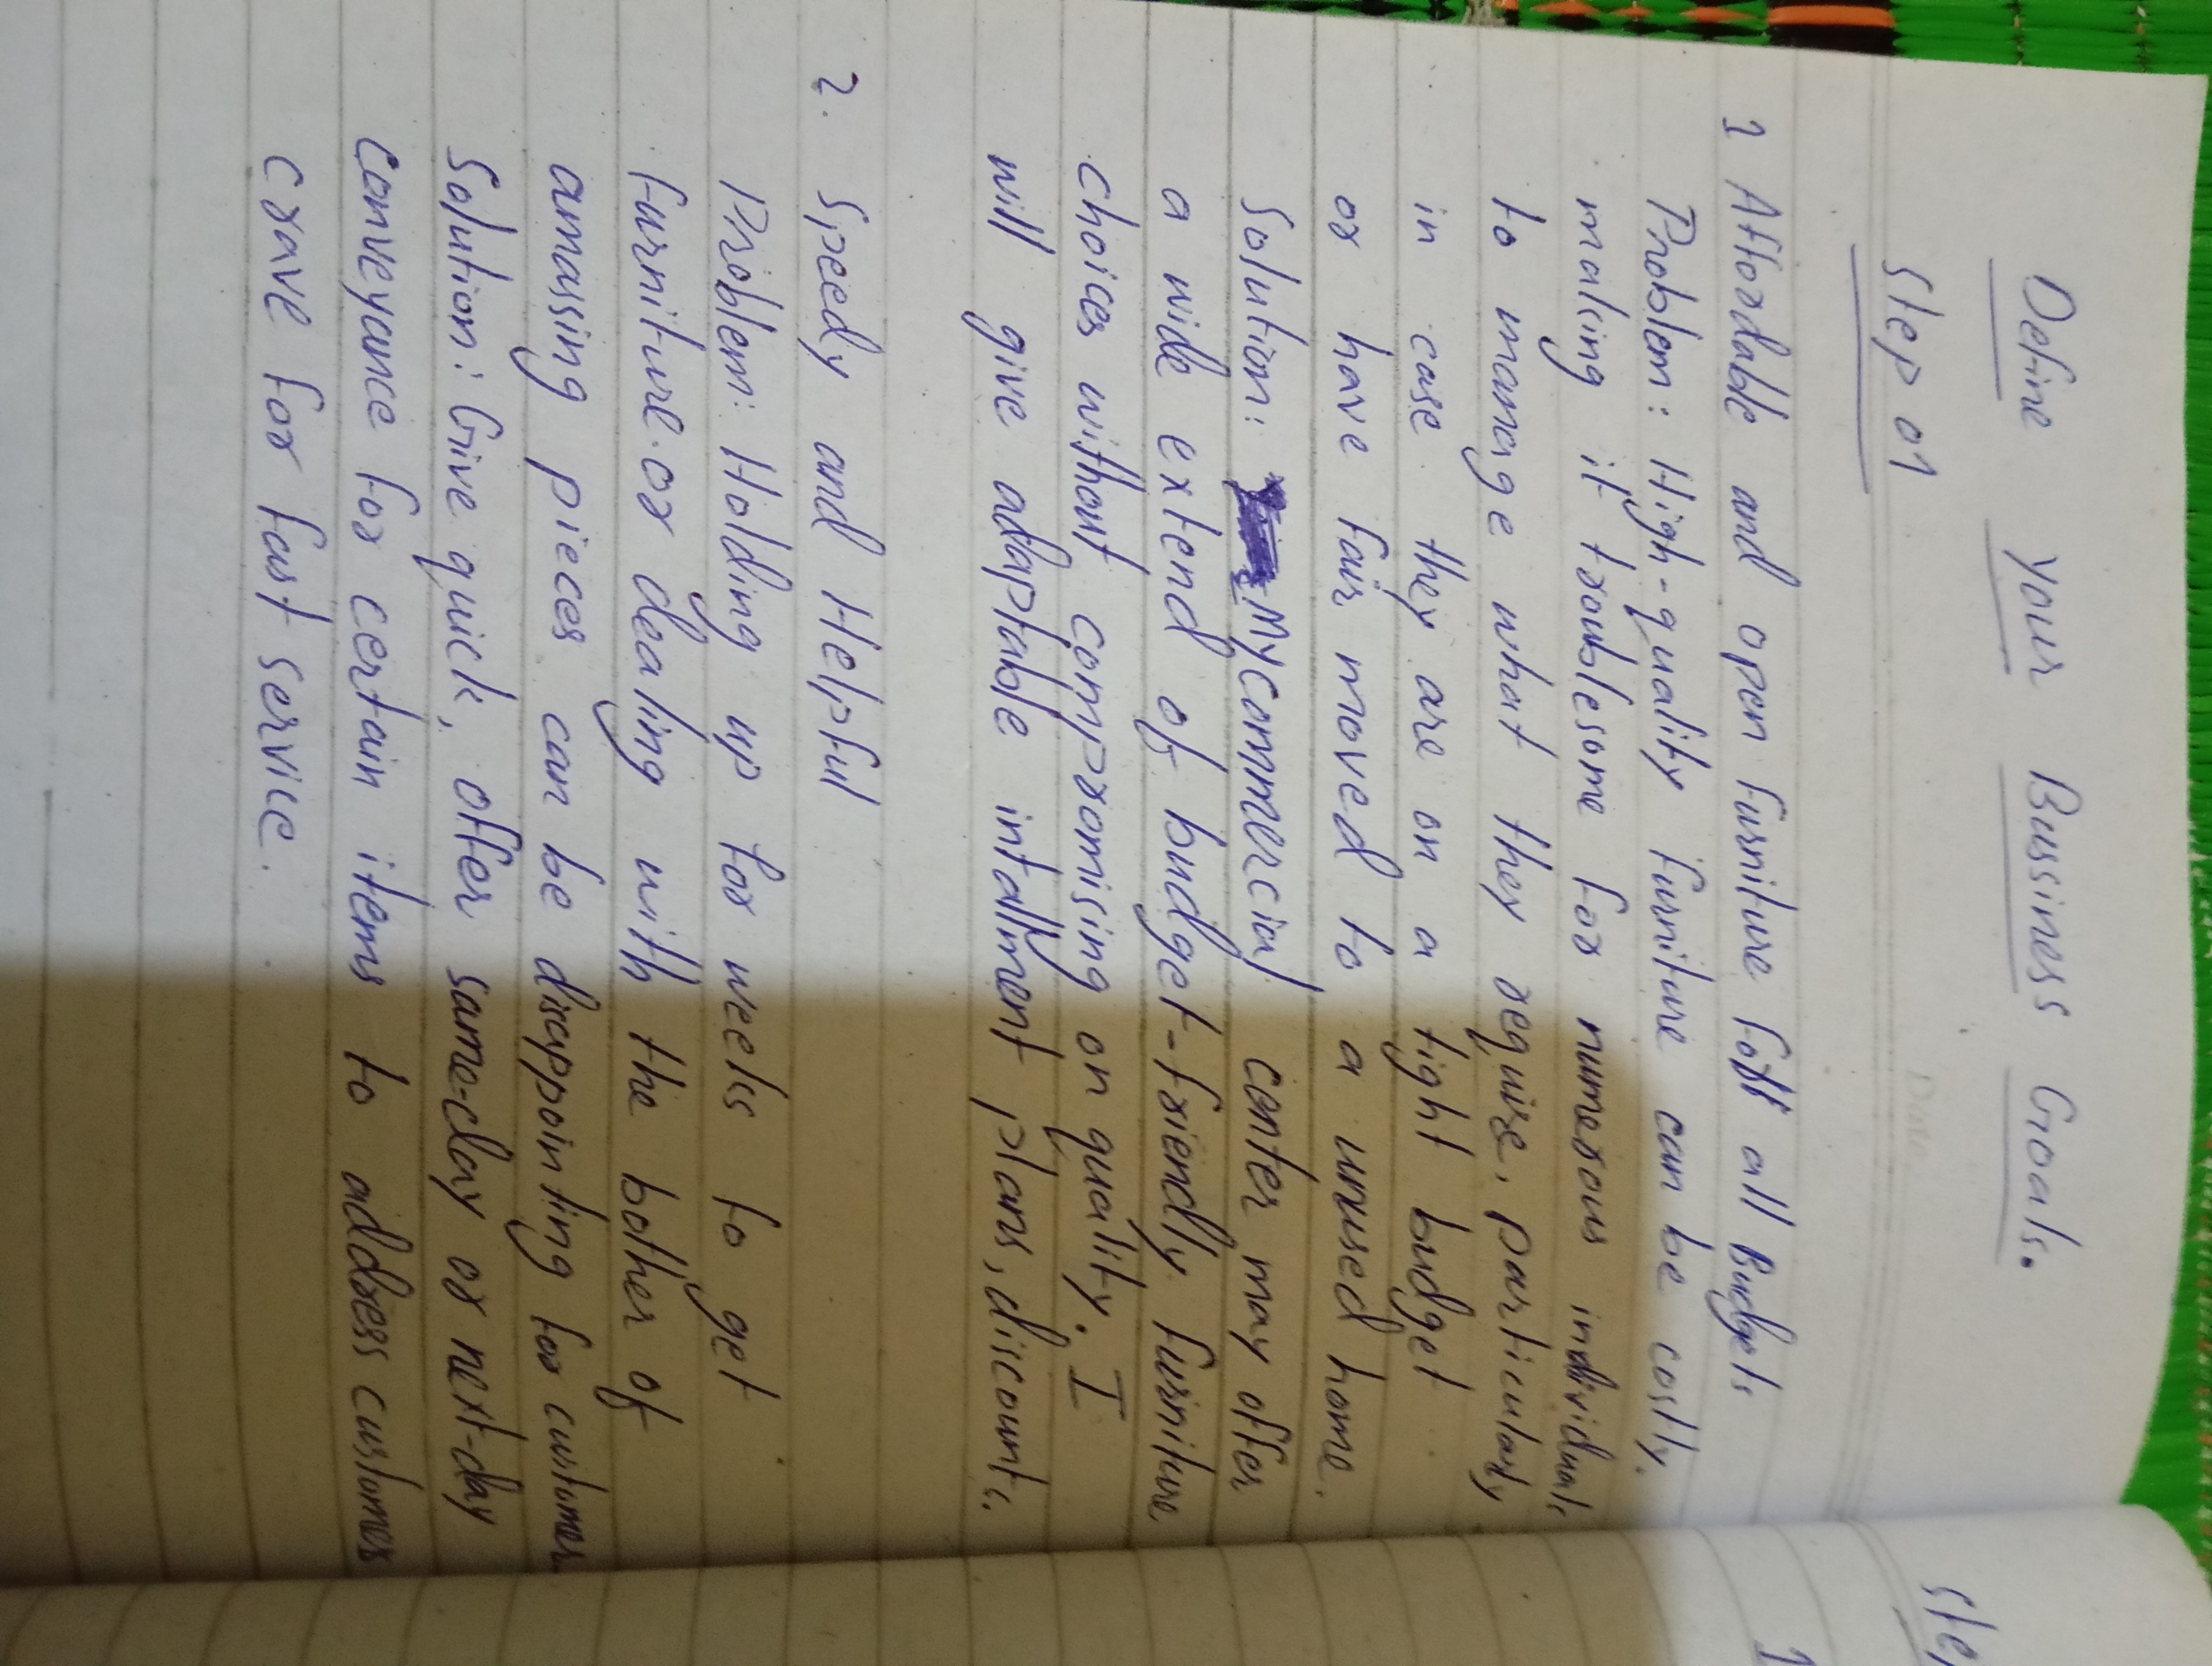 Define your Bussiness Goals.
Date
Step 01
1 Affordable and open furniture for all Budgets
Problem: High-quality furniture can be costly,
making it troublesome for numerous individuals
to manage what they require, particularly
in case they are on a tight budget
or have fair moved to a unused home.
Solution: My commercial center may offer
a wide extend of budget-friendly furniture
choices without compromising on quality. I
will give adaptable intallment plans, discounts.
2. Speedy and Helpful
Problem: Holding up for weeks to get
furniture or dealing with the bother of
amassing pieces can be disappointing for customer
Solution: Give quick, offer same-day or next-day
conveyance for certain items to address customer
crave for fast service.
Ste
1